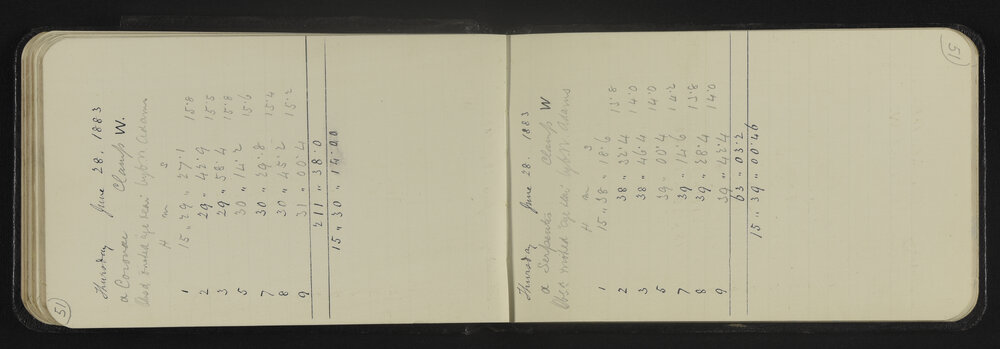 51
Thursday June 28. 1883
α Coronae Clamp W.
Obsd method eye & ear by Adams
H m s
1 15 " 29 " 27.1 15.8
2 29 " 42.9 15.5
3 29 " 58.4 15.8
5 30 " 14.2 15.6
7 30 " 29.8 15.4
8 30 " 45.2 15.2
9 31 " 00.4
211 " 38.0
15 " 30 " 14.00
51
Thursday June 28. 1883
α Serpentis Clamp W
Obsd method eye & ear by Adams
H m s
1 15 " 38 " 18.6 13.8
2 38 " 32.4 14.0
3 38 " 46.4 14.0
5 39 " 00.4 14.2
7 39 " 14.6 13.8
8 39 " 28.4 14.0
9 39 " 42.4
63 " 03.2
15 " 39 " 00.46